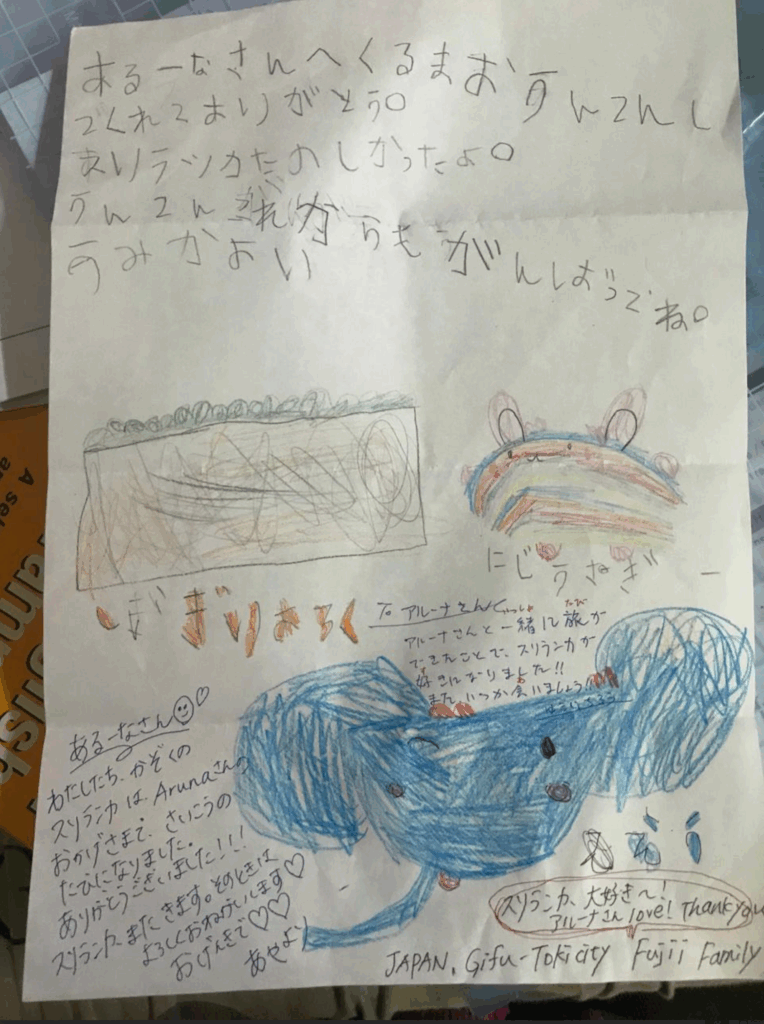 あるーなさんへくるまお
うんてんし
てくれてありがとう。
ありラツカたのしかったよ。
うんてん
これからもがんばってね。
うみがよい
にじうさぎー
しぎりあろく
To アルーナさん
アルーナさんと一緒に旅が
いっしょ たび
できたことで、スリランカが
好きになりました!!
また、いつか会いましょう!!
あるーなさん♡
わたしたち、かぞくの
スリランカは、Arunaさんの
おかげさまで、さいこうの
たびになりました。
ありがとうございました!!!
スリランカ、またきます。そのときは
よろしくおねがいします♡
おげんきで♡♡
あやより
ぞう
スリランカ、大好き〜!
アルーナさん love! Thank you
JAPAN, Gifu-Tokicity Fujii Family
A sel